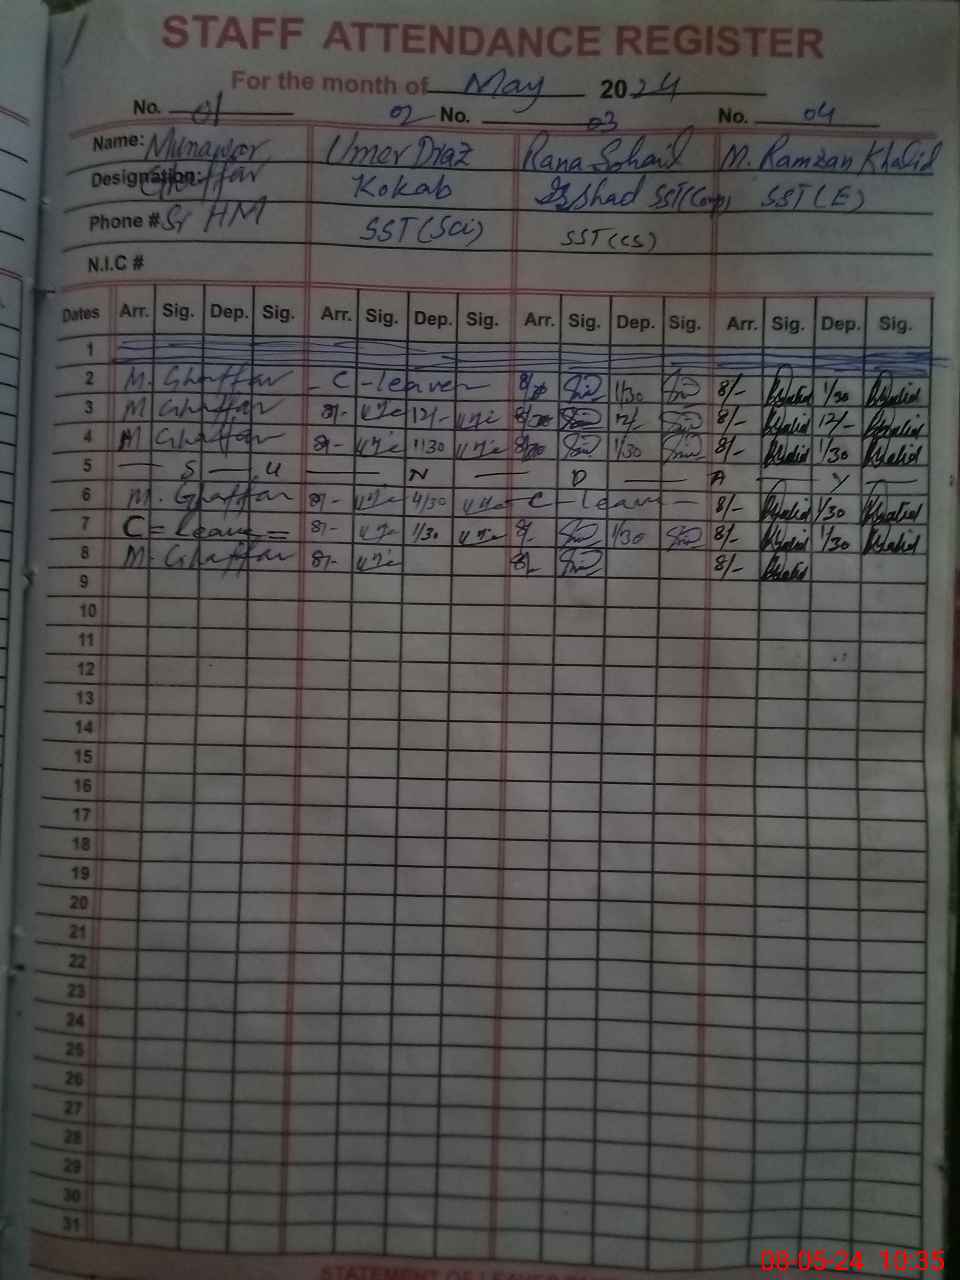 STAFF ATTENDANCE REGISTER
For the month of May 2024
No. 01 02 No. 03 No. 04
Name: Munawar Umer Draz Rana Sohail M. Ramzan Khalid
Designation: Ghaffar Kokab Shad SST(Comp) SST(E)
Phone # Sr HM SST(Sci) SST(CS)
N.I.C #
Dates Arr. Sig. Dep. Sig. Arr. Sig. Dep. Sig. Arr. Sig. Dep. Sig. Arr. Sig. Dep. Sig.
1
2 M. Ghaffar C-leave 8/- 1/30 8/- Khalid 1/30 Khalid
3 M Ghaffar 8/- 12/- 12/- 8/- Khalid 12/- Khalid
4 M Ghaffar 8/- 1130 1/30 8/- Khalid 1/30 Khalid
5 S U N D A Y
6 M. Ghaffar 8/- 4/30 C-leave 8/- Khalid 1/30 Khalid
7 C=Leave= 8/- 1/30 8/- 1/30 8/- Khalid 1/30 Khalid
8 M. Ghaffar 8/- 8/- 8/- Khalid
9
10
11
12
13
14
15
16
17
18
19
20
21
22
23
24
25
26
27
28
29
30
31
08-05-24 10:35